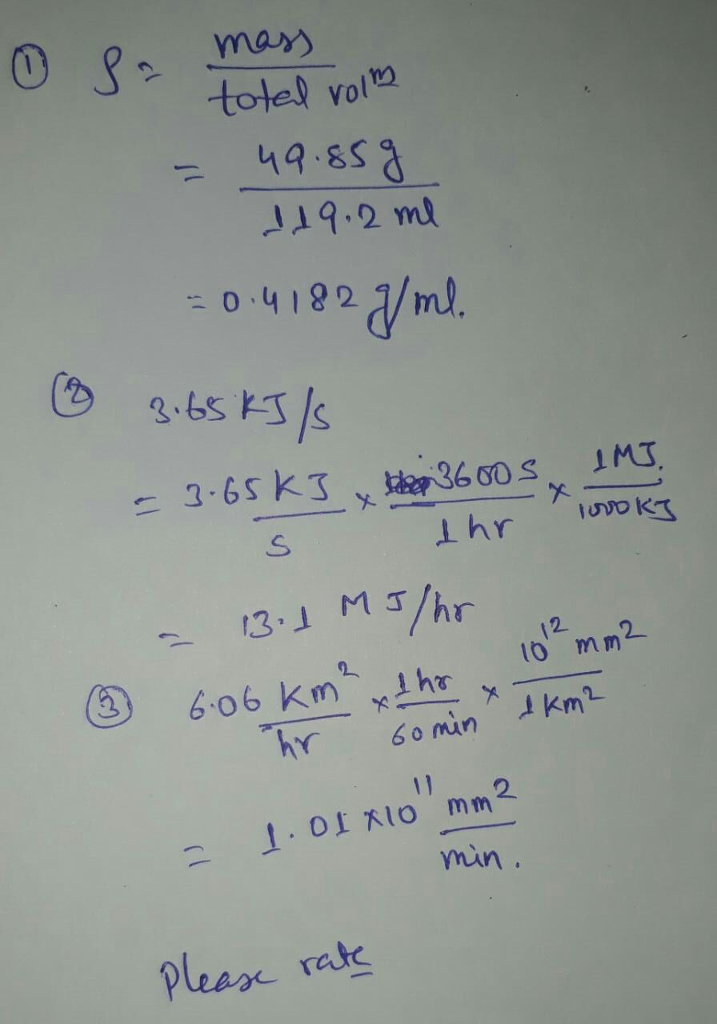 ① ρ = mass
total vol^m
= 49.85 g
119.2 ml
= 0.4182 g/ml.
② 3.65 KJ/s
= 3.65 KJ × 3600 s × 1 MJ.
s 1 hr 1000 KJ
= 13.1 MJ/hr
③ 6.06 Km² × 1 hr × 10¹² mm²
hr 60 min 1 Km²
= 1.01 × 10¹¹ mm²
min.
Please rate